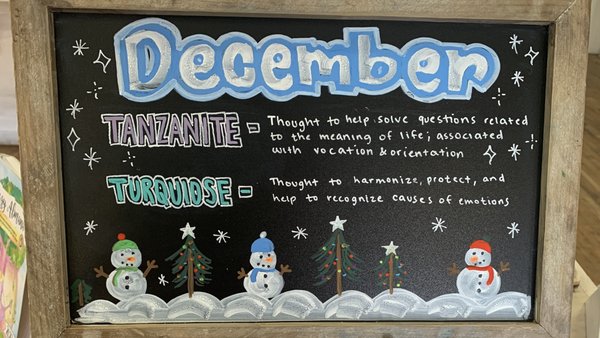 December
TANZANITE - Thought to help solve questions related
to the meaning of life; associated
with vocation & orientation
TURQUIOSE - Thought to harmonize, protect, and
help to recognize causes of emotions